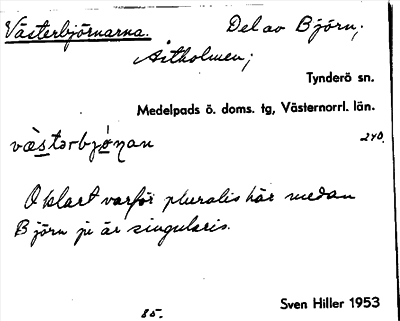 Västerbjörnarna. Del av Björn,
Åstholmen;
Tynderö sn.
Medelpads ö. doms. tg, Västernorrl. län.
240.
Oklart varför pluralis här medan
Björn ju är singularis.
Sven Hiller 1953
85.